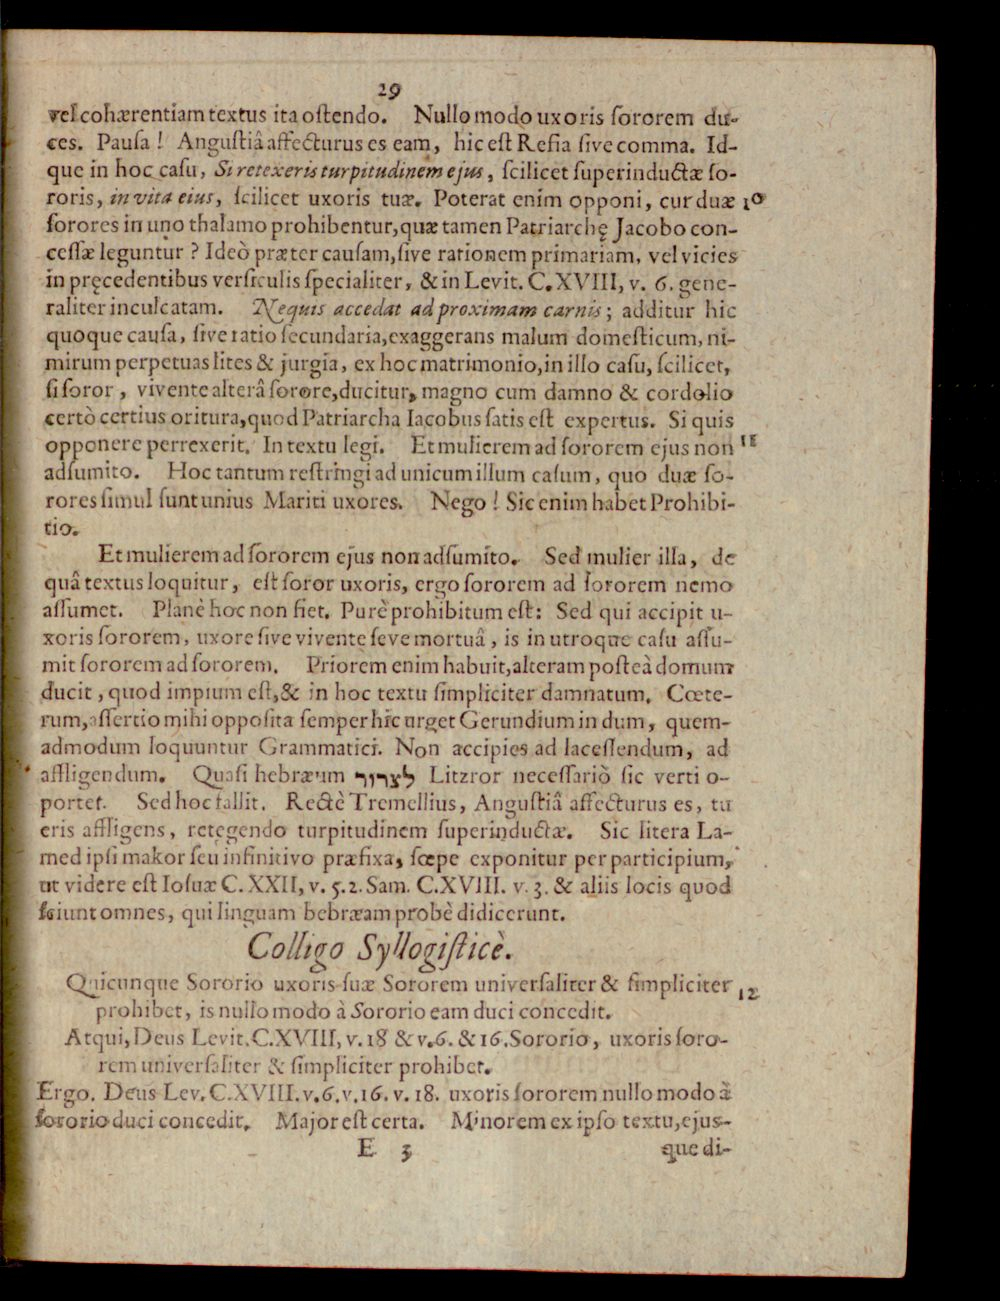 29
vel cohærentiam textus ita oſtendo. Nullo modo uxoris ſororem du-
ces. Pauſa ! Anguſtiâ affecturus es eam, hic eſt Reſia ſive comma. Id-
que in hoc caſu, Si retexeris turpitudinem ejus, ſcilicet ſuperinductæ ſo-
roris, in vita eius, ſcilicet uxoris tuæ. Poterat enim opponi, cur duæ 10
ſorores in uno thalamo prohibentur, quæ tamen Patriarchę Jacobo con-
ceſſæ leguntur ? Ideò præter cauſam, ſive rationem primariam, vel vicies
in pręcedentibus verſiculis ſpecialiter, & in Levit. C. XVIII, v. 6. gene-
raliter inculcatam. Nequis accedat ad proximam carnis; additur hic
quoque cauſa, ſive ratio ſecundaria, exaggerans malum domeſticum, ni-
mirum perpetuas lites & jurgia, ex hoc matrimonio, in illo caſu, ſcilicet,
ſi ſoror, vivente alterâ ſorore, ducitur, magno cum damno & cordolio
certò certius oritura, quod Patriarcha Iacobus ſatis eſt expertus. Si quis
opponere perrexerit. In textu legi. Et mulierem ad ſororem ejus non 11
adſumito. Hoc tantum reſtringi ad unicum illum caſum, quo duæ ſo-
rores ſimul ſunt unius Mariti uxores. Nego ! Sic enim habet Prohibi-
tio.
Et mulierem ad ſororem ejus non adſumito. Sed mulier illa, de
quâ textus loquitur, eſt ſoror uxoris, ergo ſororem ad ſororem nemo
aſſumet. Planè hoc non fiet. Purè prohibitum eſt: Sed qui accipit u-
xoris ſororem, uxore ſive vivente ſeve mortuâ, is in utroque caſu aſſu-
mit ſororem ad ſororem. Priorem enim habuit, alteram poſteà domum
ducit, quod impium eſt, & in hoc textu ſimpliciter damnatum. Cœte-
rum, aſſertio mihi oppoſita ſemper hic urget Gerundium in dum, quem-
admodum loquuntur Grammatici. Non accipies ad laceſſendum, ad
affligendum. Quaſi hebræum לצרור Litzror neceſſariò ſic verti o-
portet. Sed hoc fallit. Rectè Tremellius, Anguſtiâ affecturus es, tu
eris affligens, retęgendo turpitudinem ſuperinductæ. Sic litera La-
med ipſi makor ſeu infinitivo præfixa, ſœpe exponitur per participium,
ut videre eſt Ioſuæ C. XXII, v. 5. 2. Sam. C. XVIII. v. 3. & aliis locis quod
ſciunt omnes, qui linguam hebræam probè didicerunt.
Colligo Syllogiſticè.
Quicunque Sororio uxoris ſuæ Sororem univerſaliter & ſimpliciter 12
prohibet, is nullo modo à Sororio eam duci concedit.
Atqui, Deus Levit. C. XVIII, v. 18 & v. 6. & 16. Sororio, uxoris ſoro-
rem univerſaliter & ſimpliciter prohibet.
Ergo. Deus Lev. C. XVIII. v. 6. v. 16. v. 18. uxoris ſororem nullo modo à
ſororio duci concedit. Major eſt certa. Minorem ex ipſo textu, ejus-
E 3 que di-